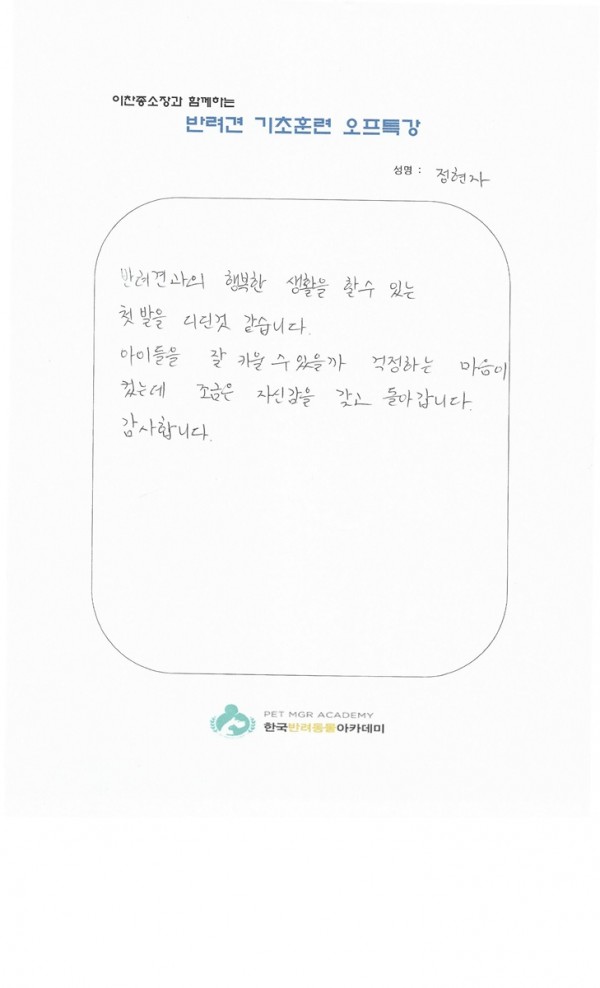 이찬종소장과 함께하는
반려견 기초훈련 오프특강
성명 : 정현자
반려견과의 행복한 생활을 할수 있는
첫발을 디딘것 같습니다.
아이들을 잘 키울 수 있을까 걱정하는 마음이
컸는데 조금은 자신감을 갖고 돌아갑니다.
감사합니다.
PET MGR ACADEMY
한국반려동물아카데미